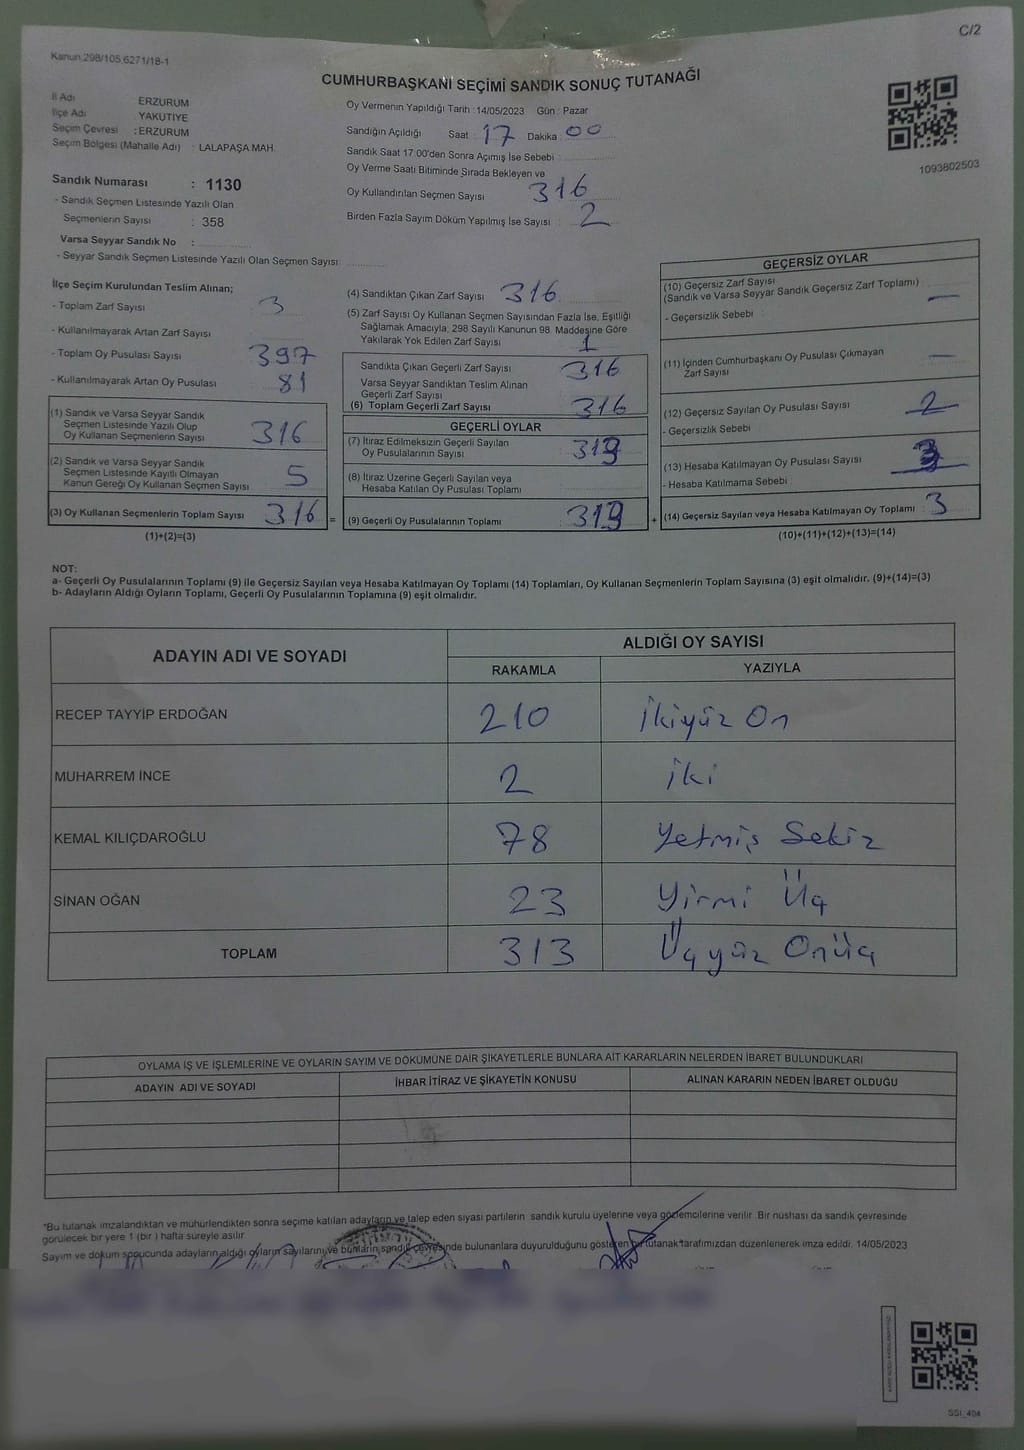 C/2
Kanun.298/105.6271/18-1
CUMHURBAŞKANI SEÇİMİ SANDIK SONUÇ TUTANAĞI
İl Adı ERZURUM
İlçe Adı YAKUTİYE
Seçim Çevresi : ERZURUM
Seçim Bölgesi (Mahalle Adı) : LALAPAŞA MAH.
Oy Vermenin Yapıldığı Tarih : 14/05/2023 Gün : Pazar
Sandığın Açıldığı Saat : 17 Dakika : 00
Sandık Saat 17:00'den Sonra Açımış İse Sebebi :
Oy Verme Saati Bitiminde Sırada Bekleyen ve
Oy Kullandırılan Seçmen Sayısı 316
Birden Fazla Sayım Döküm Yapılmış İse Sayısı : 2
1093802503
Sandık Numarası : 1130
- Sandık Seçmen Listesinde Yazılı Olan
Seçmenlerin Sayısı : 358
Varsa Seyyar Sandık No :
- Seyyar Sandık Seçmen Listesinde Yazılı Olan Seçmen Sayısı:
İlçe Seçim Kurulundan Teslim Alınan;
- Toplam Zarf Sayısı : 3
- Kullanılmayarak Artan Zarf Sayısı :
- Toplam Oy Pusulası Sayısı 397
- Kullanılmayarak Artan Oy Pusulası 81
(1) Sandık ve Varsa Seyyar Sandık
Seçmen Listesinde Yazılı Olup
Oy Kullanan Seçmenlerin Sayısı 316
(2) Sandık ve Varsa Seyyar Sandık
Seçmen Listesinde Kayıtlı Olmayan
Kanun Gereği Oy Kullanan Seçmen Sayısı 5
(3) Oy Kullanan Seçmenlerin Toplam Sayısı 316 =
(1)+(2)=(3)
(4) Sandıktan Çıkan Zarf Sayısı 316
(5) Zarf Sayısı Oy Kullanan Seçmen Sayısından Fazla İse, Eşitliği
Sağlamak Amacıyla, 298 Sayılı Kanunun 98. Maddesine Göre
Yakılarak Yok Edilen Zarf Sayısı 1
Sandıkta Çıkan Geçerli Zarf Sayısı 316
Varsa Seyyar Sandıktan Teslim Alınan
Geçerli Zarf Sayısı
(6) Toplam Geçerli Zarf Sayısı 316
GEÇERLİ OYLAR
(7) İtiraz Edilmeksizin Geçerli Sayılan
Oy Pusulalarının Sayısı 313
(8) İtiraz Üzerine Geçerli Sayılan veya
Hesaba Katılan Oy Pusulası Toplamı
(9) Geçerli Oy Pusulalarının Toplamı 313 +
GEÇERSİZ OYLAR
(10) Geçersiz Zarf Sayısı
(Sandık ve Varsa Seyyar Sandık Geçersiz Zarf Toplamı) : —
- Geçersizlik Sebebi :
(11) İçinden Cumhurbaşkanı Oy Pusulası Çıkmayan
Zarf Sayısı —
(12) Geçersiz Sayılan Oy Pusulası Sayısı 2
- Geçersizlik Sebebi
(13) Hesaba Katılmayan Oy Pusulası Sayısı 3
- Hesaba Katılmama Sebebi :
(14) Geçersiz Sayılan veya Hesaba Katılmayan Oy Toplamı : 3
(10)+(11)+(12)+(13)=(14)
NOT:
a- Geçerli Oy Pusulalarının Toplamı (9) ile Geçersiz Sayılan veya Hesaba Katılmayan Oy Toplamı (14) Toplamları, Oy Kullanan Seçmenlerin Toplam Sayısına (3) eşit olmalıdır. (9)+(14)=(3)
b- Adayların Aldığı Oyların Toplamı, Geçerli Oy Pusulalarının Toplamına (9) eşit olmalıdır.
ADAYIN ADI VE SOYADI
ALDIĞI OY SAYISI
RAKAMLA YAZIYLA
RECEP TAYYİP ERDOĞAN 210 İkiyüz On
MUHARREM İNCE 2 İki
KEMAL KILIÇDAROĞLU 78 Yetmiş Sekiz
SİNAN OĞAN 23 Yirmi Üç
TOPLAM 313 Üçyüz Onüç
OYLAMA İŞ VE İŞLEMLERİNE VE OYLARIN SAYIM VE DÖKÜMÜNE DAİR ŞİKAYETLERLE BUNLARA AİT KARARLARIN NELERDEN İBARET BULUNDUKLARI
ADAYIN ADI VE SOYADI İHBAR İTİRAZ VE ŞİKAYETİN KONUSU ALINAN KARARIN NEDEN İBARET OLDUĞU
*Bu tutanak imzalandıktan ve mühürlendikten sonra seçime katılan adayların ve talep eden siyasi partilerin sandık kurulu üyelerine veya gözlemcilerine verilir. Bir nüshası da sandık çevresinde
görülecek bir yere 1 (bir) hafta süreyle asılır.
Sayım ve döküm sonucunda adayların aldığı oyların sayılarını ve bunların sandık çevresinde bulunanlara duyurulduğunu gösteren bir tutanak tarafımızdan düzenlenerek imza edildi. 14/05/2023
SSI_404